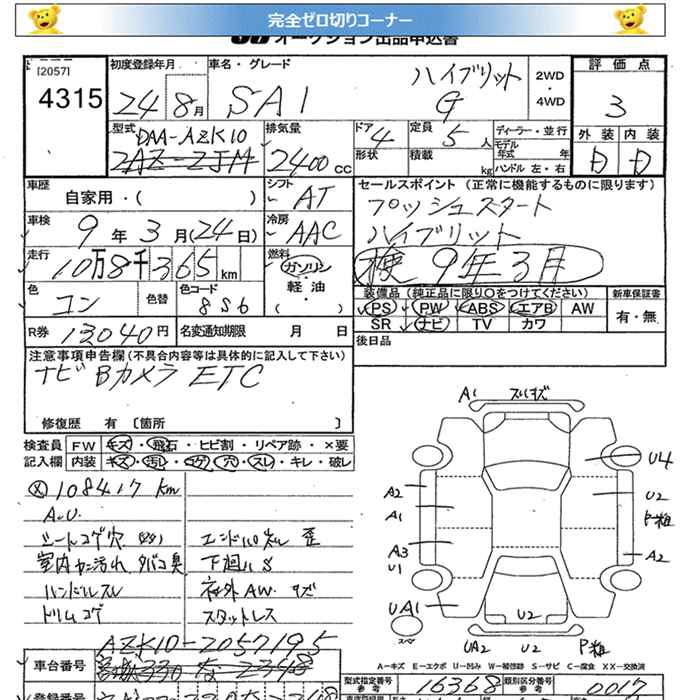 完全ゼロ切りコーナー
オークション出品申込書
[2057]
4315
初度登録年月 24 8月
車名・グレード SAI ハイブリット G
2WD ・ 4WD
評価点 3
外装 内装
D D
型式 DAA-AZK10
2AZ-2JM
排気量 2400 CC
ドア 4 形状
定員 5 人 積載 kg
ディーラー・並行
モデル年式 年
ハンドル 左・右
車歴 自家用・( )
シフト AT
車検 9年3月(24日)
冷房 AAC
走行 10万8千365km
燃料 ガソリン・軽油・( )
色 コン 色替 色コード 8S6
R券 13040円 名変通知期限 月 日
セールスポイント (正常に機能するものに限ります)
プッシュスタート
ハイブリット
検 9年3月
装備品 (純正品に限り○をつけてください)
PS PW ABS エアB AW
SR ナビ TV カワ
新車保証書
有・無
後日品
注意事項申告欄(不具合内容等は具体的に記入して下さい)
ナビ Bカメラ ETC
修復歴 有 〔箇所 〕
検査員 FW キズ・飛石・ヒビ割・リペア跡・×要
記入欄 内装 キズ・汚レ・コゲ・穴・スレ・キレ・破レ
108417 km
A.U.
シートコゲ穴 エンドパネル 歪
室内ヤニ汚れ タバコ臭 下回りS
ハンドルスレ 社外AW. キズ
ドリムコゲ スタットレス
A1
U4
A2 U2
A1 P-粗
A3 A2
U1
UA1 U2
スペア UA2 U2 P粗
A-キズ E-エクボ U-凹み W-補修跡 S-サビ C-腐食 XX-交換済
AZK10-2057195
車台番号
型式指定番号 参考 16368 類別区分番号 参考 0017
登録番号